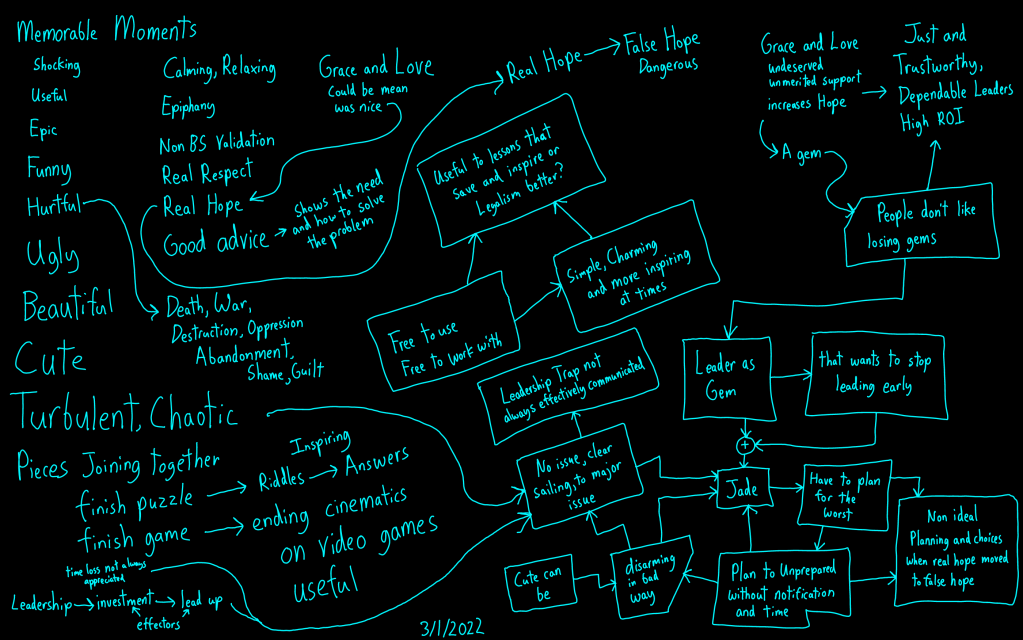 Memorable Moments
Shocking
Useful
Epic
Funny
Hurtful
Ugly
Beautiful
Cute
Turbulent, Chaotic
Calming, Relaxing
Epiphany
Non BS Validation
Real Respect
Real Hope
Good advice
Shows the need
and how to solve
the problem
Grace and Love
Could be mean
was nice
Death, War,
Destruction, Oppression
Abandonment,
Shame, Guilt
Real Hope
False Hope
Dangerous
Useful to lessons that
save and inspire or
Legalism better?
Simple, Charming
and more inspiring
at times
Free to use
Free to work with
Grace and Love
undeserved
unmerited support
increases Hope
Just and
Trustworthy,
Dependable Leaders
High ROI
A gem
People don't like
losing gems
Leader as
Gem
that wants to stop
leading early
+
Jade
Have to plan
for the
worst
Non ideal
Planning and choices
when real hope moved
to false hope
Plan to Unprepared
without notification
and time
disarming
in bad
way
Cute can
be
No issue, clear
sailing, to major
issue
Leadership Trap not
always effectively communicated
Pieces Joining together
finish puzzle
Riddles
Inspiring
Answers
finish game
ending cinematics
on video games
useful
time loss not always
appreciated
Leadership
investment
lead up
effectors
3/1/2022